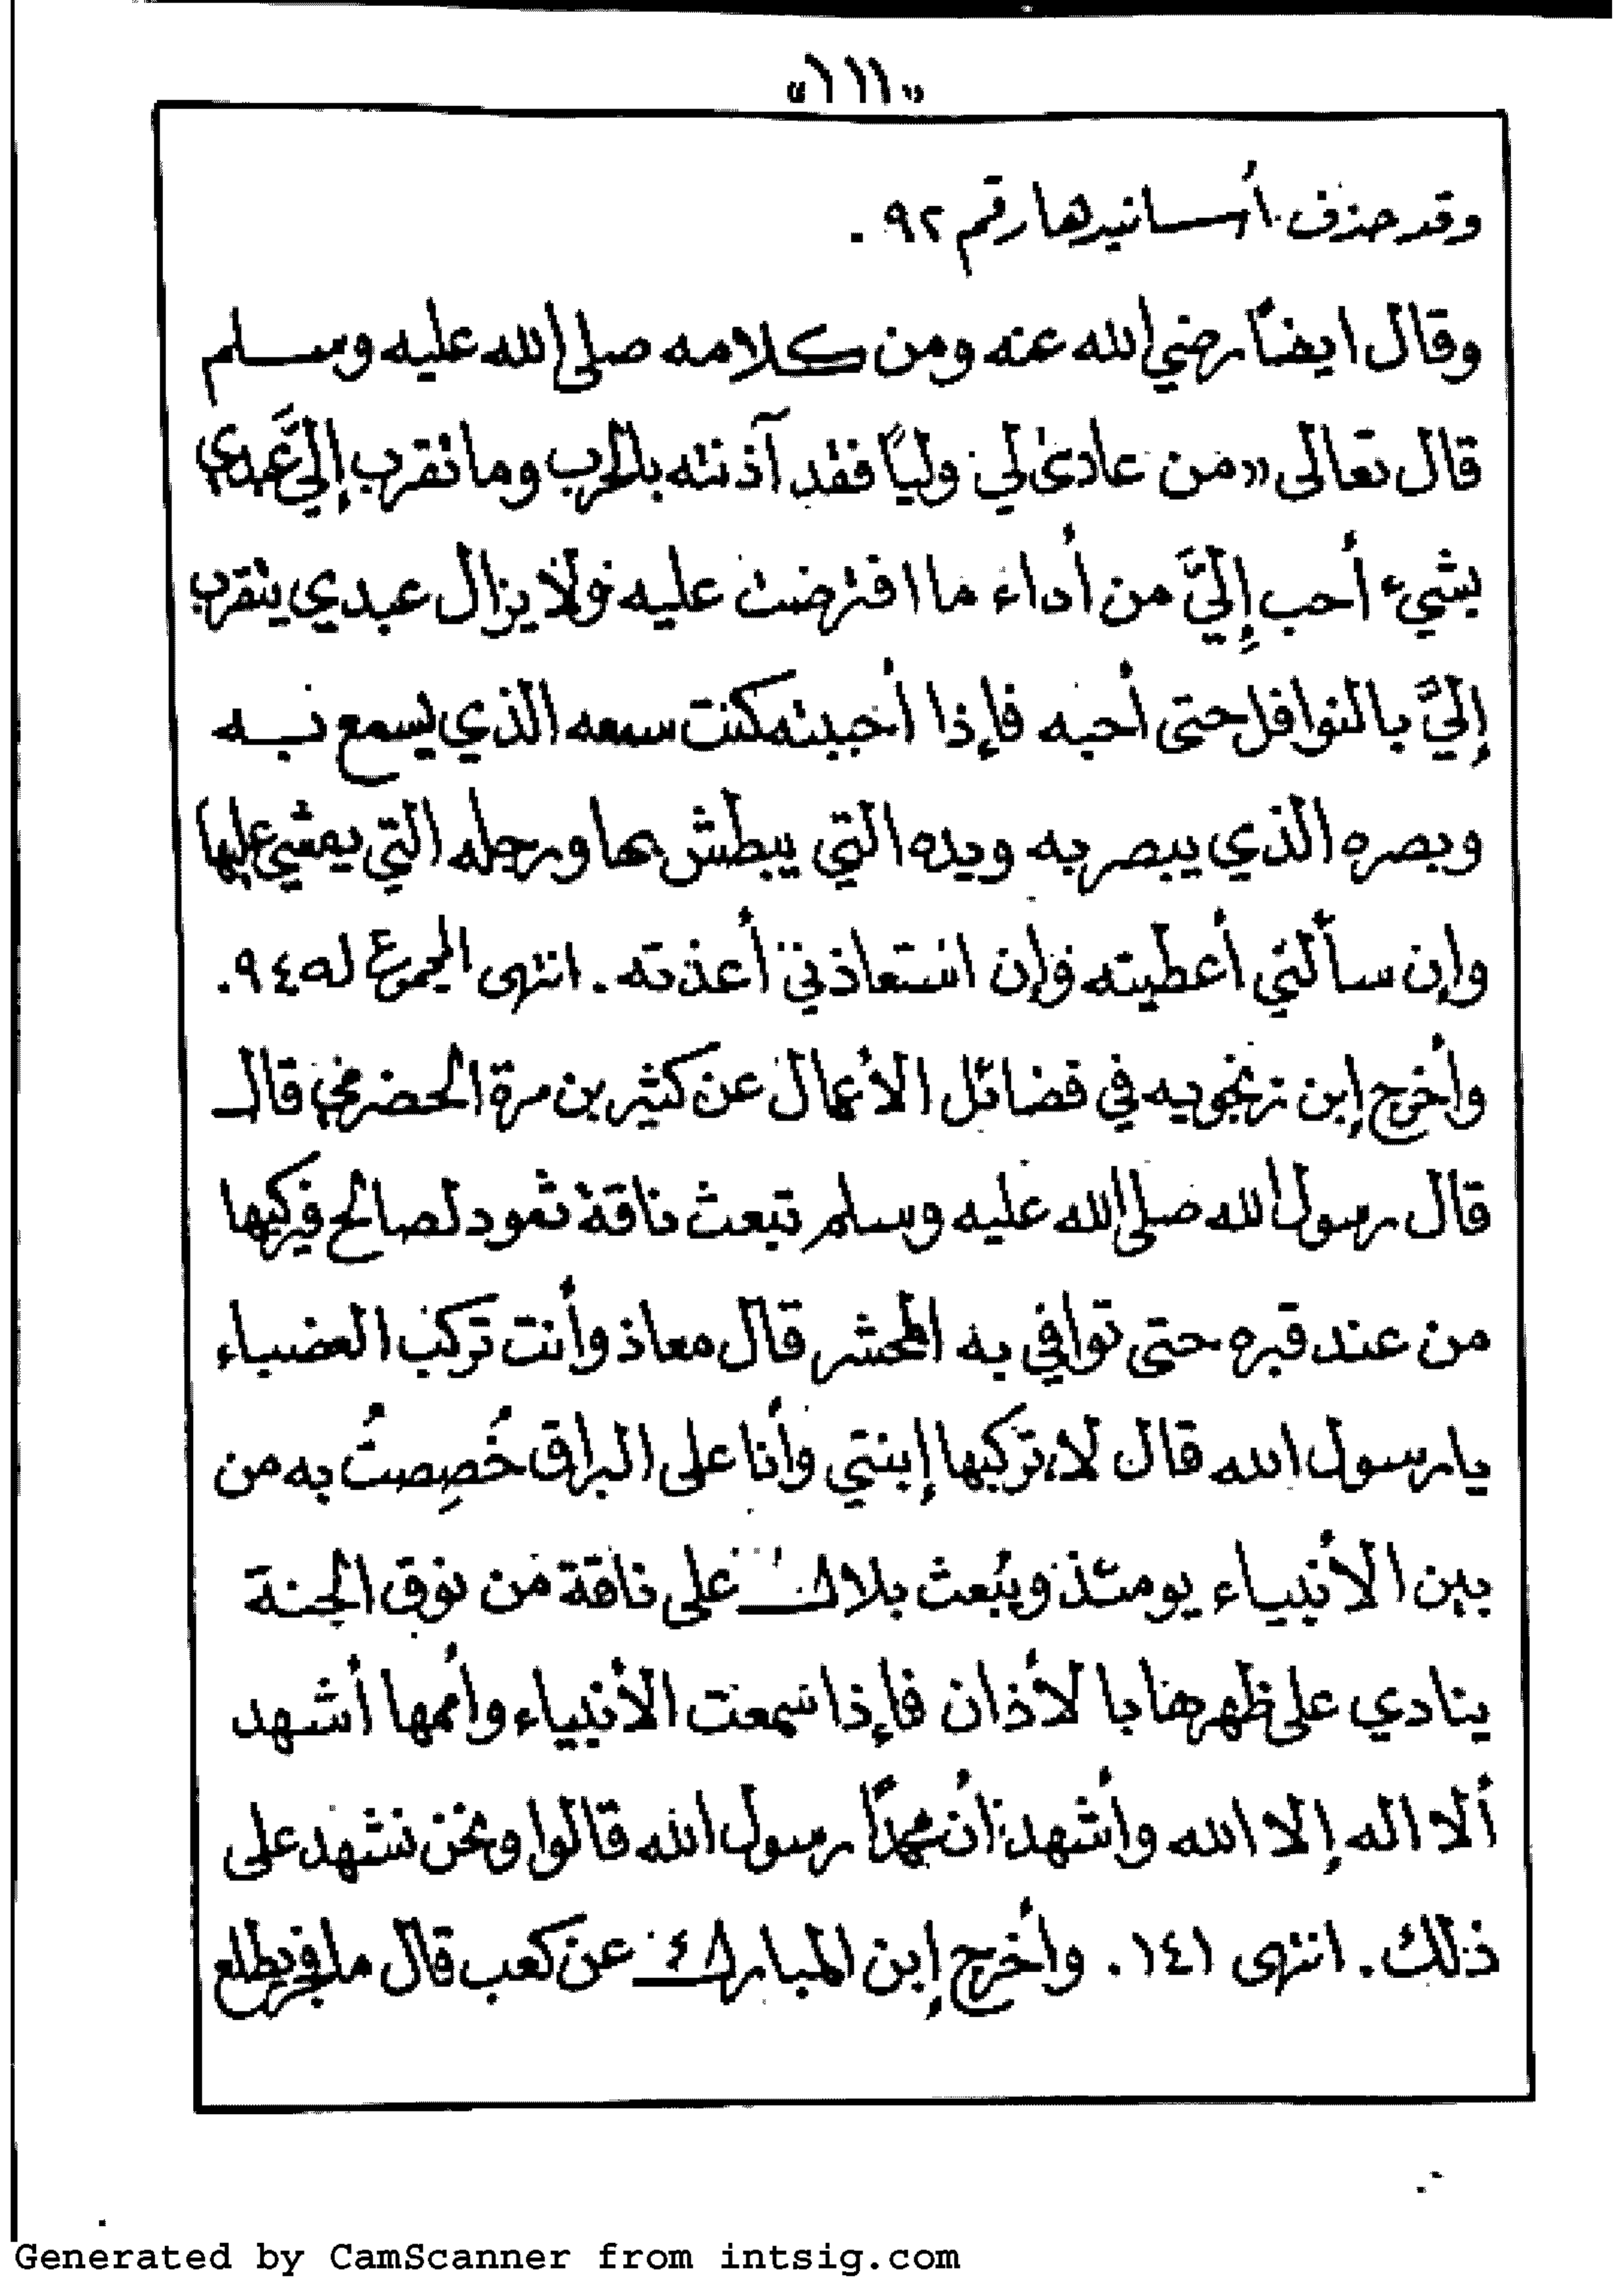 «١١١»
وقد حذف أسانيدها رقم ٩٢ .
وقال ايضاً رضي الله عنه ومن كلامه صلى الله عليه وسلم
قال تعالى «من عادى لي ولياً فقد آذنته بالحرب وما تقرب إليَّ عبدي
بشيء أحب إِليَّ من أداء ما افترضت عليه ولا يزال عبدي يتقرب
إليَّ بالنوافل حتى أحبه فإذا أحببته كنت سمعه الذي يسمع به
وبصره الذي يبصر به ويده التي يبطش بها ورجله التي يمشي عليها
وإن سألني أعطيته وإن استعاذني أعذته . انتهى المجموع له ٩٤.
وأخرج إبن زنجويه في فضائل الأعمال عن كثير بن مرة الحضرمي قال
قال رسول الله صلى الله عليه وسلم تبعث ناقة ثمود لصالح فيركبها
من عند قبره حتى توافي به المحشر قال معاذ وأنت تركب العضباء
يا رسول الله قال لا، تركبها إبنتي وأنا على البراق خُصِصتُ به من
بين الأنبياء يومئذ ويُبعث بلال على ناقة من نوق الجنة
ينادي على ظهرها بالأذان فإذا سمعت الأنبياء وأممها أشهد
ألا اله إلا الله وأشهد أن محمداً رسول الله قالوا ونحن نشهد على
ذلك. انتهى ١٤١ . وأخرج إبن المبارك عن كعب قال ما فجر يطلع
Generated by CamScanner from intsig.com